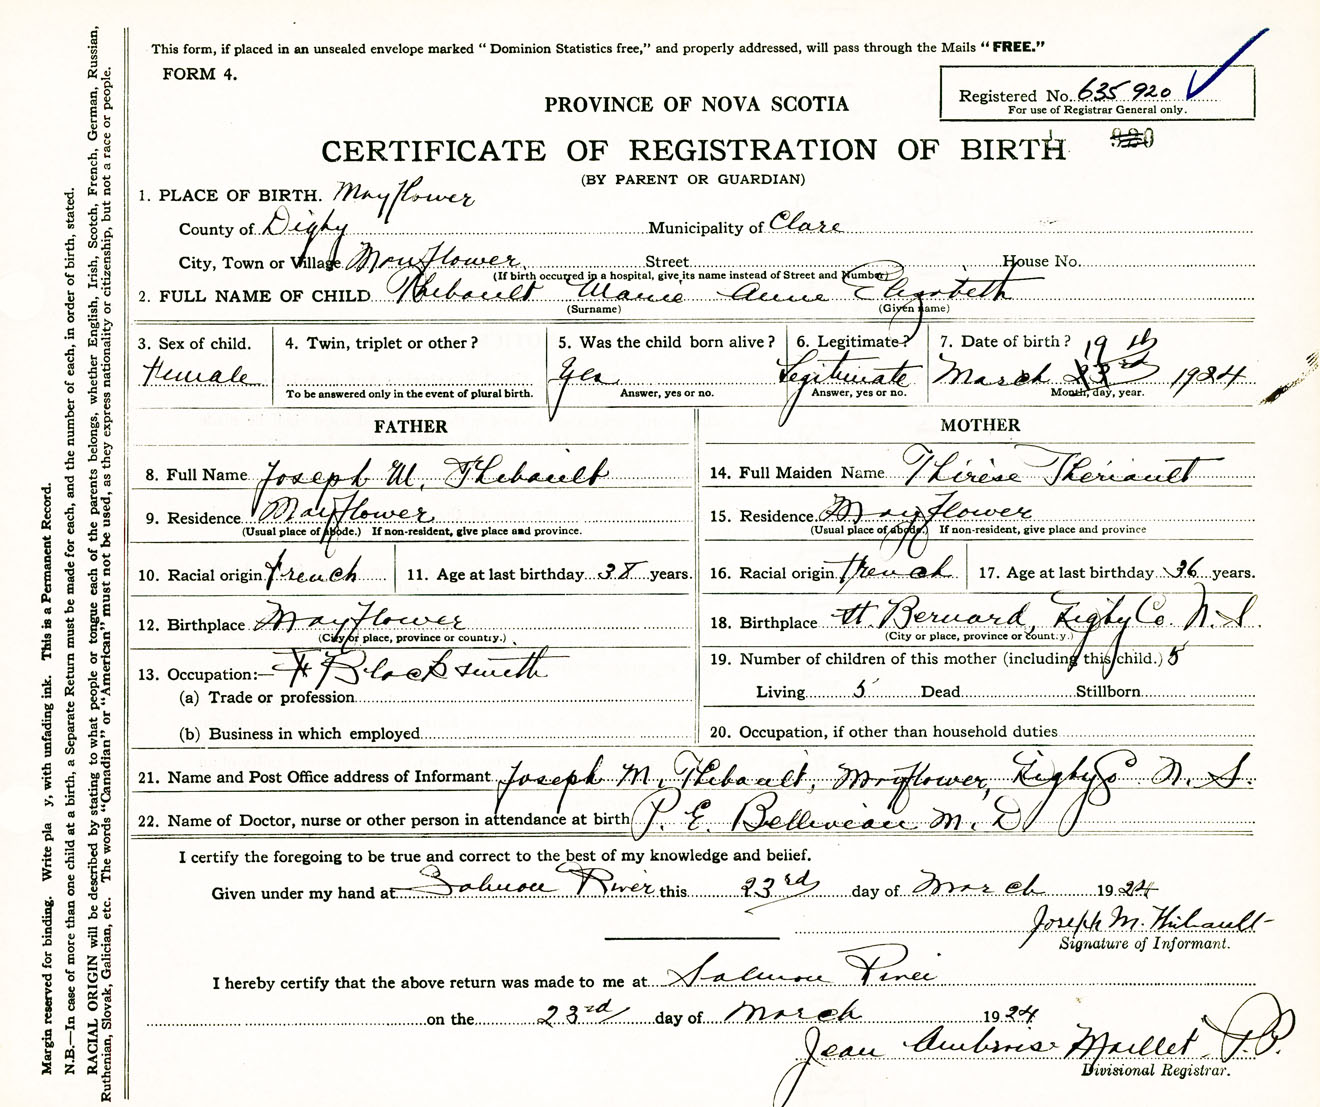 This form, if placed in an unsealed envelope marked "Dominion Statistics free," and properly addressed, will pass through the Mails "FREE."
FORM 4.
Registered No. 635 920
For use of Registrar General only.
PROVINCE OF NOVA SCOTIA
CERTIFICATE OF REGISTRATION OF BIRTH
(BY PARENT OR GUARDIAN)
1. PLACE OF BIRTH. Mayflower
County of Digby Municipality of Clare
City, Town or Village Mayflower Street House No.
(If birth occurred in a hospital, give its name instead of Street and Number)
2. FULL NAME OF CHILD Thibault Marie Anne Elizabeth
(Surname) (Given name)
3. Sex of child. 4. Twin, triplet or other? 5. Was the child born alive? 6. Legitimate? 7. Date of birth? 19th
Female Yes Legitimate March 23rd 1924
To be answered only in the event of plural birth. Answer, yes or no. Answer, yes or no. Month, day, year.
FATHER MOTHER
8. Full Name Joseph M. Thibault 14. Full Maiden Name Thérèse Thériault
9. Residence Mayflower 15. Residence Mayflower
(Usual place of abode.) If non-resident, give place and province. (Usual place of abode.) If non-resident, give place and province
10. Racial origin French 11. Age at last birthday 38 years. 16. Racial origin French 17. Age at last birthday 36 years.
12. Birthplace Mayflower 18. Birthplace St. Bernard, Digby Co. N. S.
(City or place, province or country.) (City or place, province or country.)
13. Occupation:— Blacksmith 19. Number of children of this mother (including this child.) 5
(a) Trade or profession Living 5 Dead Stillborn
(b) Business in which employed 20. Occupation, if other than household duties
21. Name and Post Office address of Informant Joseph M. Thibault, Mayflower, Digby Co N. S.
22. Name of Doctor, nurse or other person in attendance at birth P. E. Belliveau M. D
I certify the foregoing to be true and correct to the best of my knowledge and belief.
Given under my hand at Salmon River this 23rd day of March 1924
Joseph M. Thibault
Signature of Informant.
I hereby certify that the above return was made to me at Salmon River
on the 23rd day of March 1924
Jean Ambroise Maillet
Divisional Registrar.
Margin reserved for binding. Write pla y, with unfading ink. This is a Permanent Record.
N.B.—In case of more than one child at a birth, a Separate Return must be made for each, and the number of each, in order of birth, stated.
RACIAL ORIGIN will be described by stating to what people or tongue each of the parents belongs, whether English, Irish, Scotch, French, German, Russian,
Ruthenian, Slovak, Galician, etc. The words "Canadian" or "American" must not be used, as they express nationality or citizenship, but not a race or people.